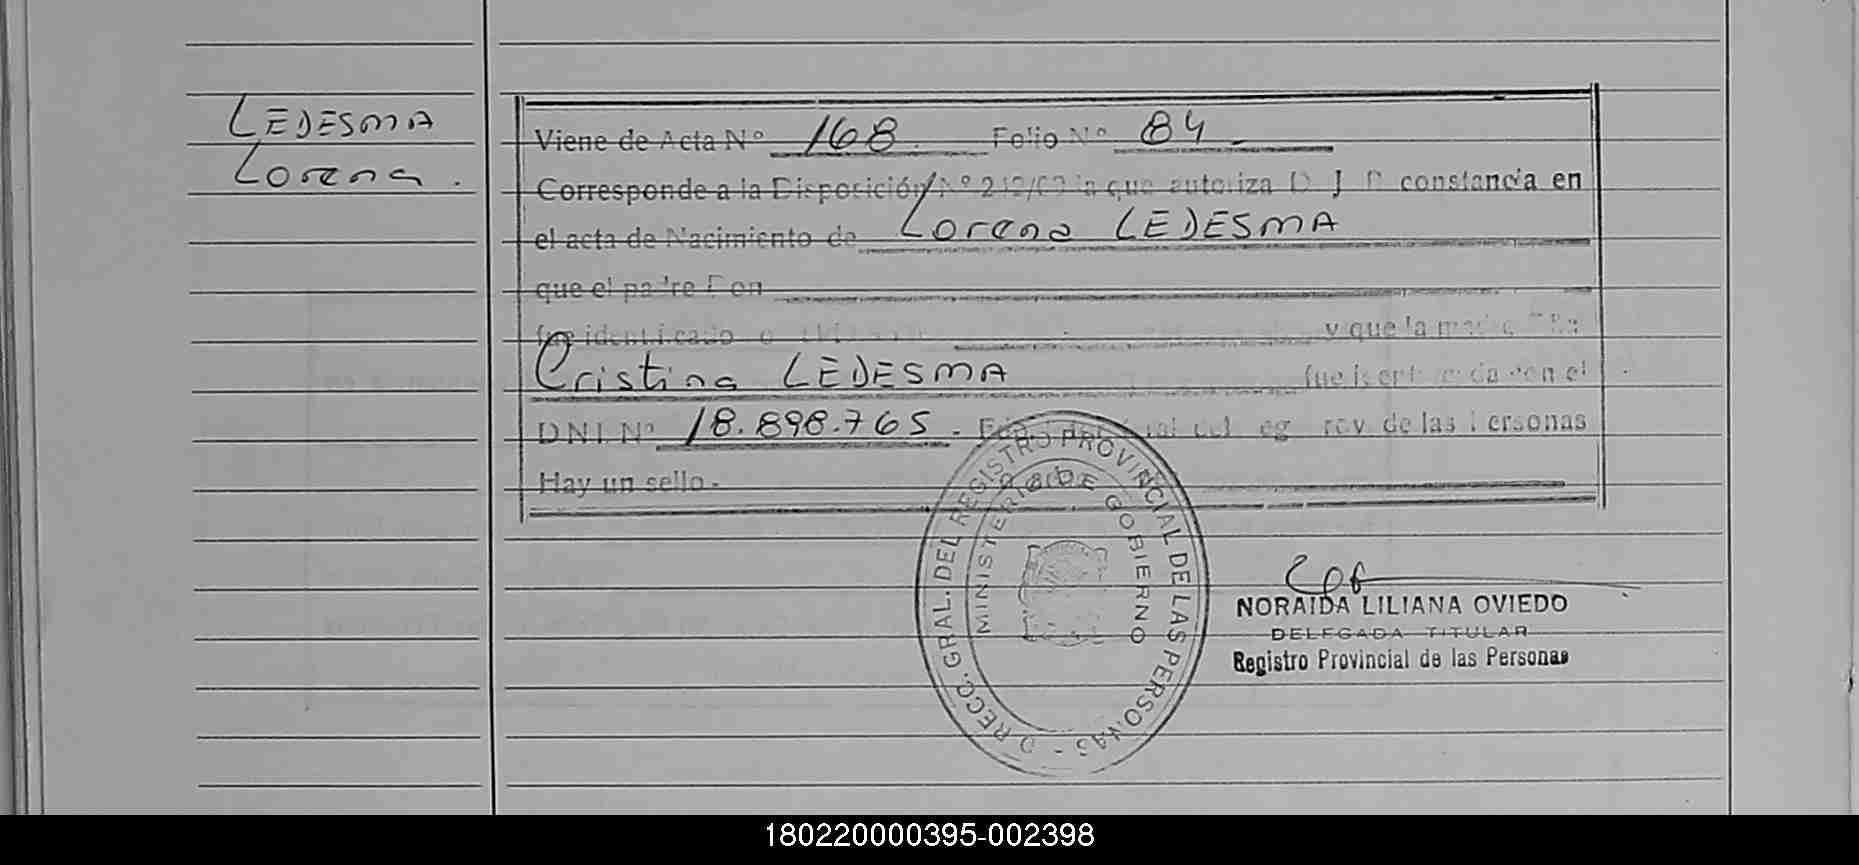 LEDESMA
Lorena.
Viene de Acta Nº 168. Folio Nº 84.-
Corresponde a la Disposición Nº 212/03 la que autoriza D J D constancia en
el acta de Nacimiento de Lorena LEDESMA
que el padre Don
fue identificado y que la madre Dña
Cristina LEDESMA fue identificada con el
DNI Nº 18.898.765.- del Reg Prov. de las Personas
Hay un sello.-
DIRECC. GRAL. DEL REGISTRO PROVINCIAL DE LAS PERSONAS -
MINISTERIO DE GOBIERNO
NORAIDA LILIANA OVIEDO
DELEGADA TITULAR
Registro Provincial de las Personas
180220000395-002398